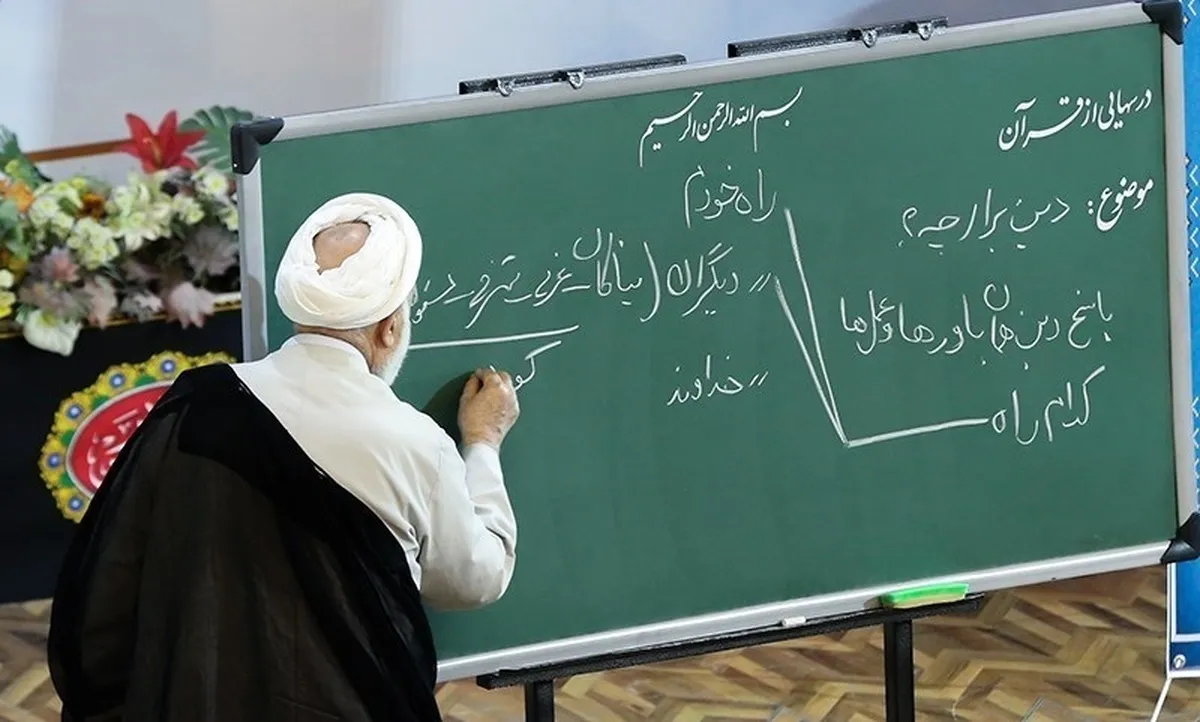 بسم الله الرحمن الرحیم
درسهایی از قرآن
موضوع: دین برا چه؟
پاسخ دین‌ها، باورها و عمل‌ها
کدام راه
راه خودم
〃 دیگران (نیاکان - غرب -
〃 خداوند